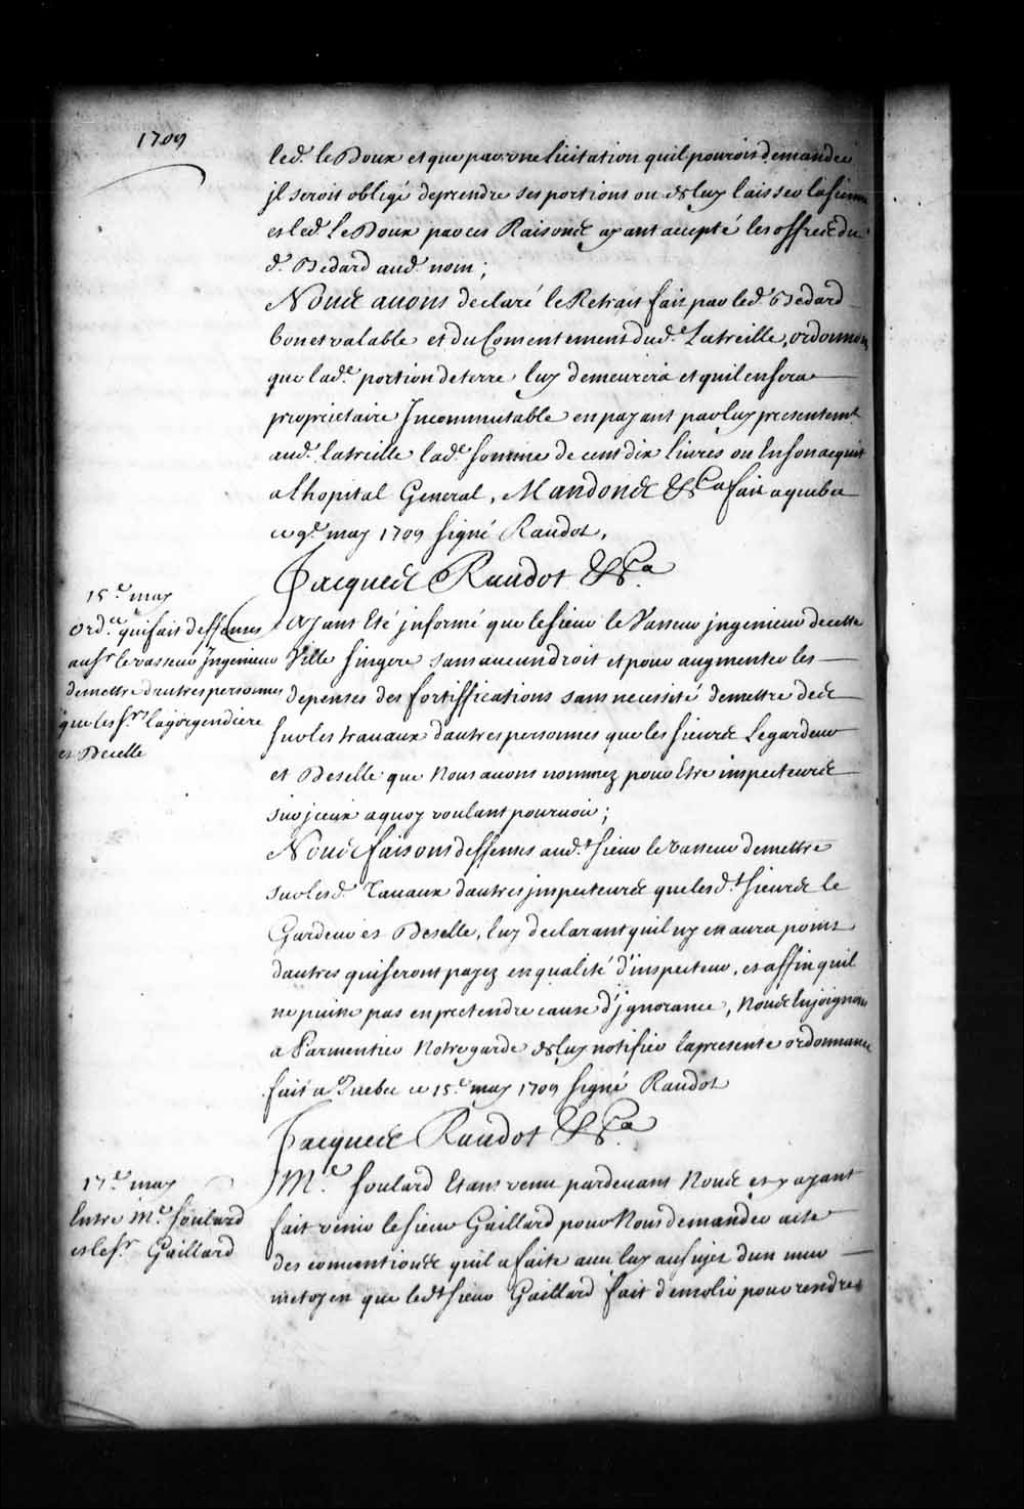 1709
led. le Doux et que par une licitation quil pouroit demander
il seroit obligé deprendre ses portions ou de luy laisser la sienne
et led. Le Doux par ces Raisons ayant accepté les offres du
d. Bedard aud. nom ;
Nous auons declaré le Retrait fait par led. Bedard
bon et valable et du Consentement dud. Latreille, ordonnons
que lad.e portion de terre luy demeurera et quil en sera
proprietaire Incommutable en payant par luy presentemt.
aud. latreille lad.e somme de cent dix liures ou En son acquit
a Lhopital General, Mandons &c.a fait a quebec
ce 9.e may 1709 signé Raudot,
Jacques Raudot &c.a
15.e may
Ord.ce qui fait deffenses
au Sr. levasseur Ingenieur
demettre dautres personnes
que les Srs. lagorgendiere
et Decelle
Ayant Eté informé que le sieur le Vasseur ingenieur de cette
Ville singere sans aucun droit et pour augmenter les
depenses des fortiffications sans necessité demettre des
sur les trauaux dautres personnes que les sieurs Legardeur
et Deselle que Nous auons nommez pour Etre inspecteurs
sur iceux a quoy voulant pouruoir ;
Nous faisons deffenses aud.t sieur le vasseur demettre
sur lesd. Trauaux dautres inspecteurs que lesd.t sieurs le
Gardeur et Deselle, luy declarant quil ny en aura point
dautres qui seront payez en qualité d'inspecteur, et affin quil
ne puisse pas en pretendre cause d'ignorance, Nous Enjoignons
a Parmentier Notre garde de luy notifier la presente ordonnance
fait a Quebec ce 15.e may 1709 signé Raudot
Jacques Raudot &c.a
17.e may
Entre M.e foulard
et le Sr. Gaillard
M.e foulard Etant venu pardeuant Nous et y ayant
fait venir le sieur Gaillard pour Nous demander acte
des conuentions quil a faite auec luy au sujet dun mur
metoyen que led.t sieur Gaillard fait demolir pour rendre